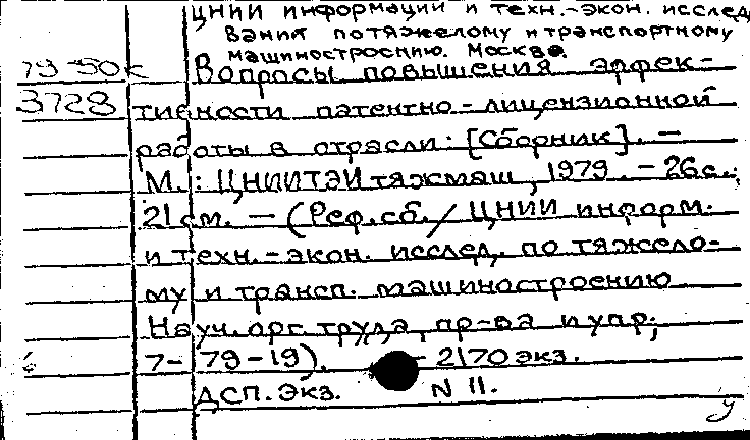 ЦНИИ информации и техн.-экон. исслед
вания по тяжелому и транспортному
машиностроению. Москва.
79-50к Вопросы повышения эффек-
3728 тивности патентно-лицензионной
работы в отрасли: [Сборник]. -
М.: ЦНИИТЭИтяжмаш, 1979. - 26с.;
21 см. - (Реф.сб./ ЦНИИ информ.
и техн.-экон. исслед, по тяжело-
му и трансп. машиностроению
Науч.орг.труда, пр-ва и упр;
7-79-19). - 2170 экз.
ДСП. Экз. N 11.